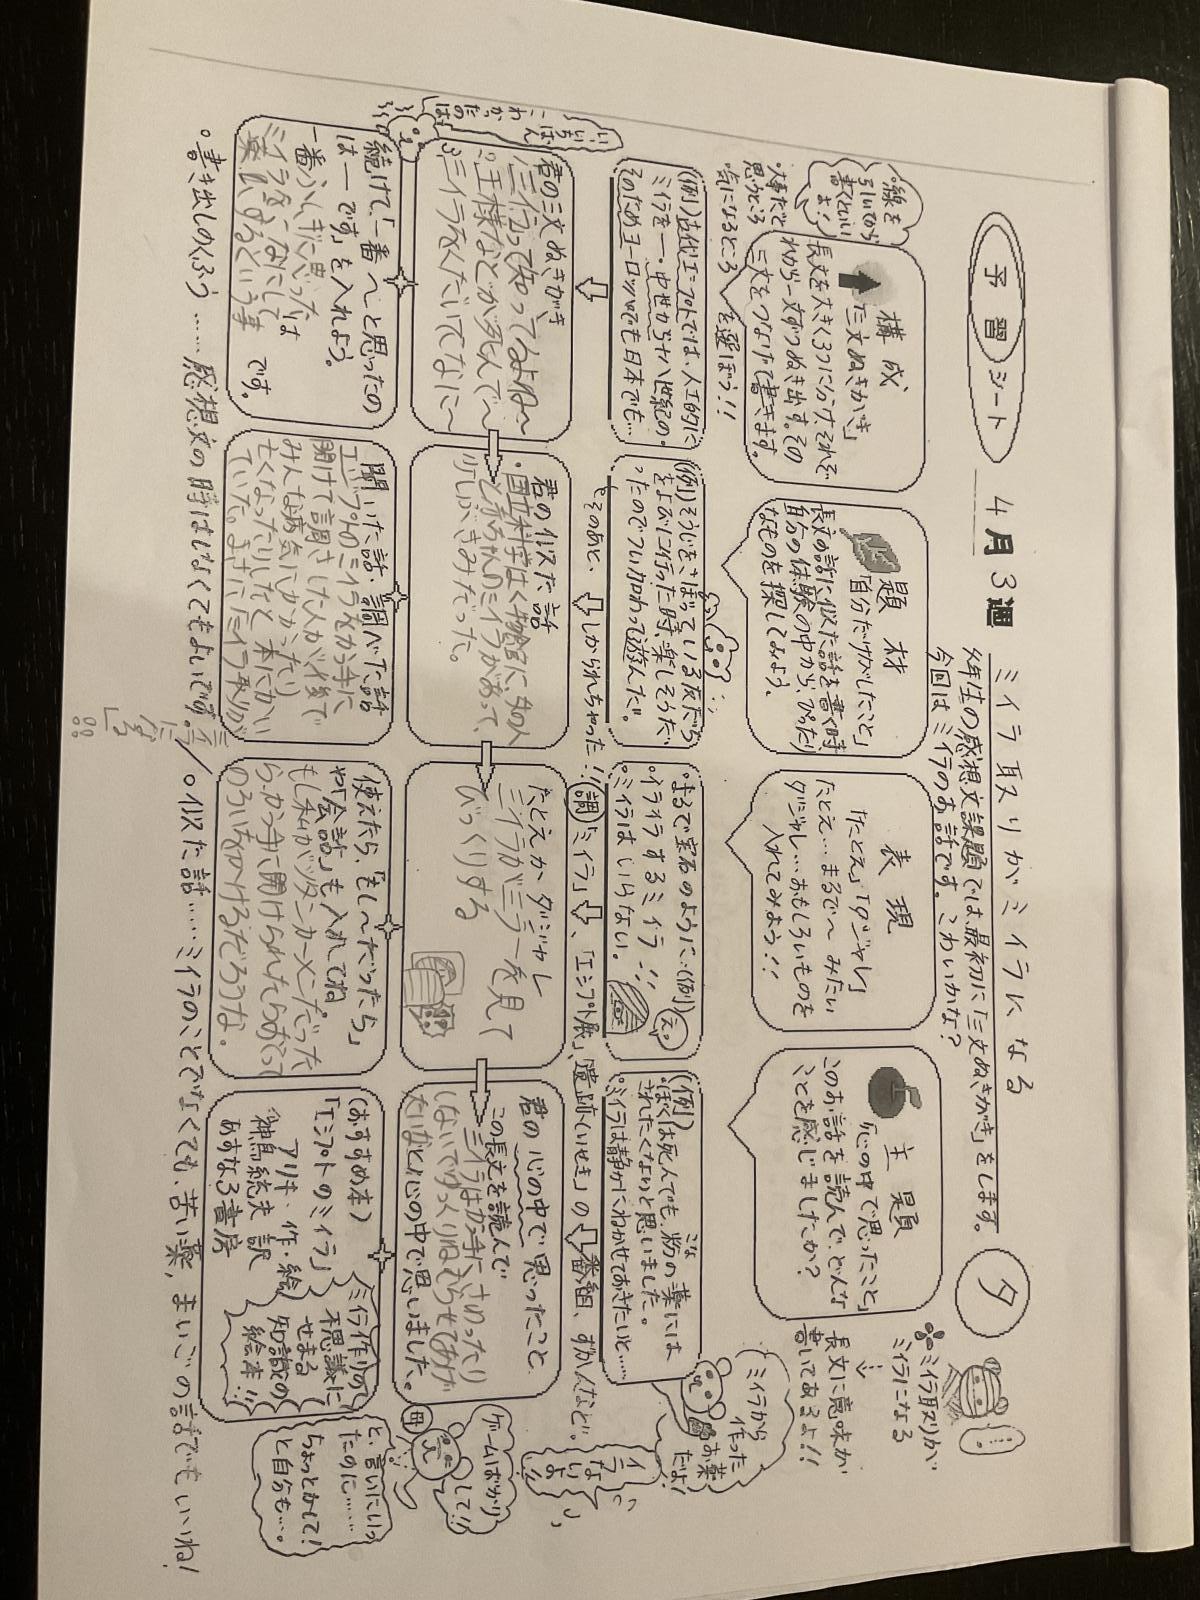 予習シート
4月3週
ミイラ取りがミイラになる
タ
年生の感想文課題では、最初に「三文ぬきがき」をします。
今回はミイラのお話です。こわいかな？
ミイラ取りが
ミイラになる
↓
長文に意味が
書いてあるよ!!
構成
「三文ぬきがき」
長文を大きく3つに分け、それぞ
れから一文ずつぬき出す。その
三文をつなげて書きます。
・線を
引いてから
書くといい
よ！
・大事だと
思うところ
・気になるところ
を選ぼう!!
題材
「自分だけがしたこと」
長文の話に似た話を書く時
自分の体験の中から、ぴった
なものを探してみよう。
表現
「たとえ」「ダジャレ」
たとえ…まるで〜みたい
ダジャレ…おもしろいものを
入れてみよう!!
主題
「心の中で思ったこと」
このお話を読んで、どんな
ことを感じましたか？
(例)古代エジプトでは、人工的に
ミイラを…。中世から十八世紀の…
そのためヨーロッパでも日本でも…
(例)そうじをさぼっている友だち
をよびに行った時、楽しそうだ
ったのでつい加わって遊んだ。
そのあと、しかられちゃった!!
まるで宝石のように…(例)
・イライラするミイラ!!
・ミイラはいらない。
え。
(例)
ぼくは死んでも、粉の薬には
こな
されたくないと思いました。
・ミイラは静かにねかせておきたいと……
ミイラから
作った
お薬
だよ！
調「ミイラ」、「エジプト展」、「遺跡(いせき)」の番組、ずかんなど。
君の三文ぬきがき
ミイラって知ってるよね〜
2.王様などが死んで〜
3.ミイラをくだいてこなに〜
君の似た話
・国立科学はく物館に、女の人
と赤ちゃんのミイラがあって、
少しぶきみだった。
たとえかダジャレ
ミイラがミラーを見て
びっくりする
君の心の中で思ったこと
この長文を読んで
ミイラはかっ手にさわったり
しないでゆっくりねむらせてあげ
たいなと心の中で思いました。
いちばん
わかったのは
続けて、「一番〜と思ったの
は…です」を入れよう。
一番ふしぎと思ったは
ミイラをこなにして
薬にするという事です。
聞いた話・調べた話
エジプトのミイラをかっ手に
開けて調さした人が、後で
みんな病気にかかったり
亡くなったりしたと本にかい
ていた。まさにミイラ取りが
使えたら、「もし〜だったら」
や「会話」も入れてね
もし私がツタンカーメンだった
ら、かっ手に開けられたらおこって
のろいをかけるだろうな。
(おすすめ本)
「エジプトのミイラ」
アリキ・作・絵
神鳥統夫 訳
あすなろ書房
ミイラ作りの
不思議に
せまる
知識の
絵本!!
ゲームばかり
して!!
母
と、言いにいっ
たのに……
ちょっとかして！
と自分も…。
。書き出しのくふう……感想文の時はしなくてもよいです。
。似た話……ミイラのことでなくても、苦い薬、まいごの話でもいいね！